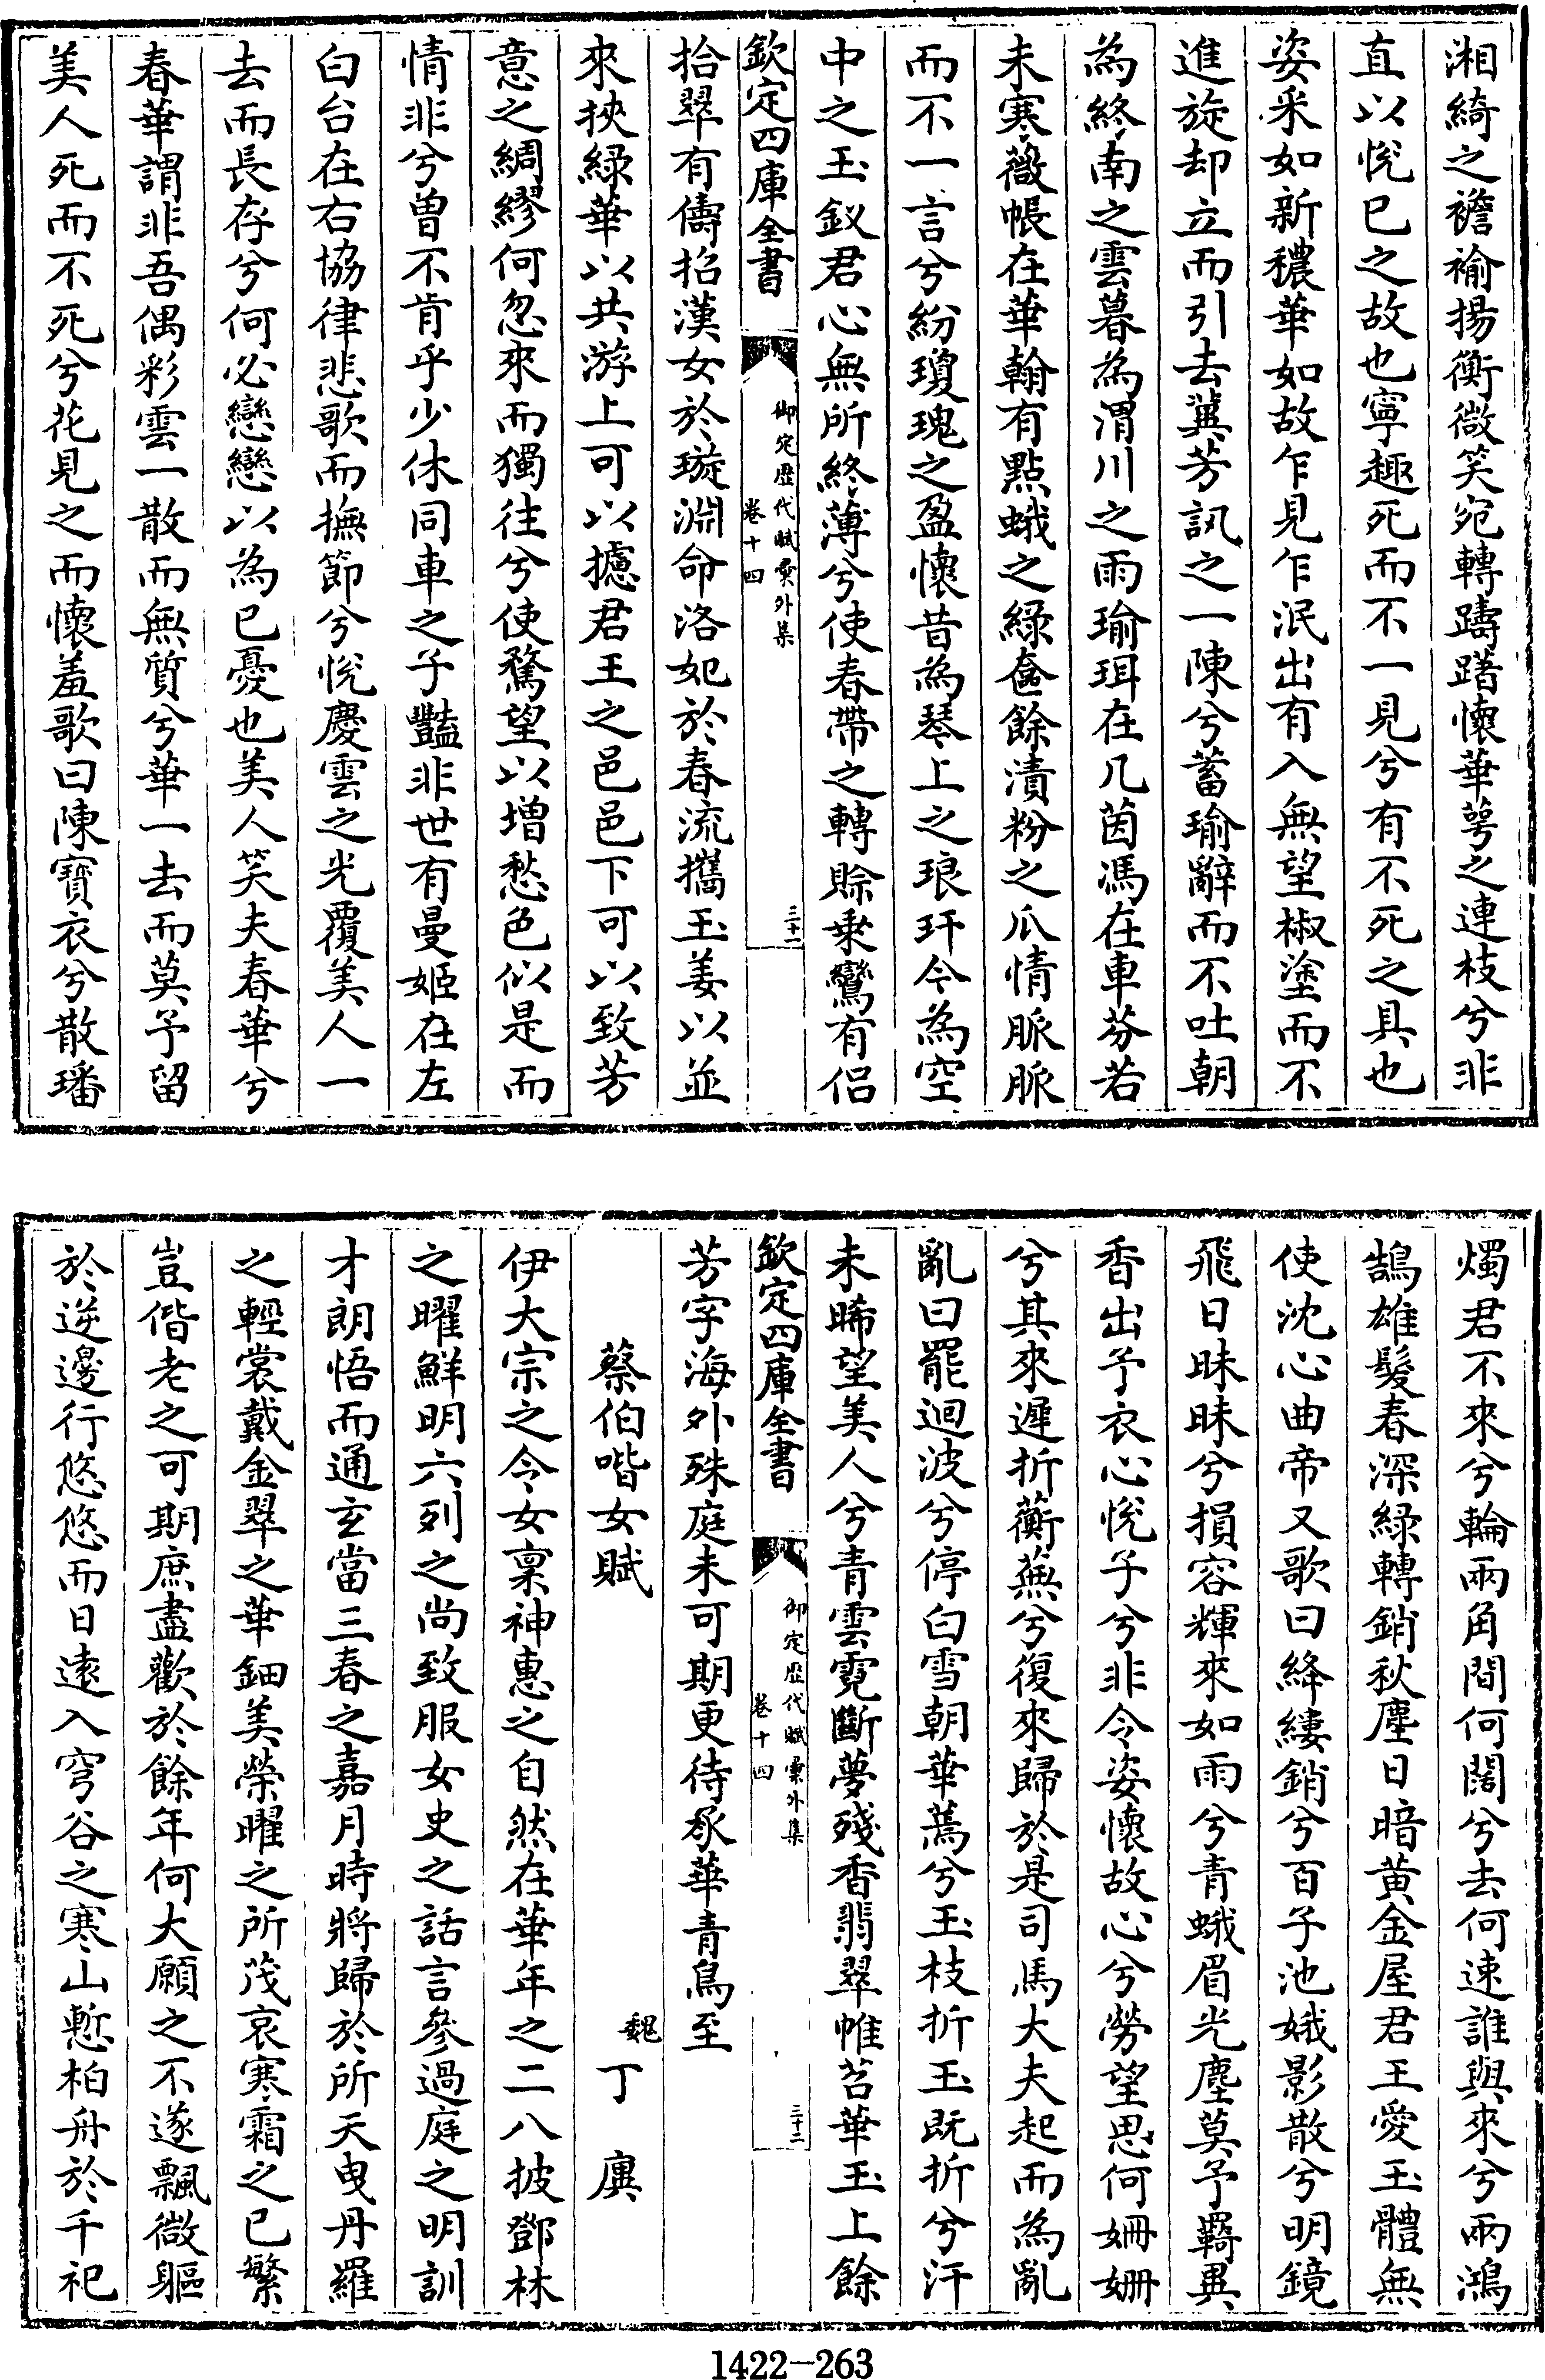 湘綺之襜褕揚衡微笑宛轉躊躇懷華萼之連枝兮非
直以悅已之故也寧趣死而不一見兮有不死之具也
姿采如新穠華如故乍見乍泯出有入無望椒塗而不
進旋却立而引去冀芳訊之一陳兮蓄瑜辭而不吐朝
為終南之雲暮為渭川之雨瑜珥在几茵馮在車芬若
未寒薇帳在華翰有點蛾之綠奩餘漬粉之爪情脈脈
而不一言兮紛瓊瑰之盈懷昔為琴上之琅玕今為空
中之玉釵君心無所終薄兮使春帶之轉賒乘鸞有侣
欽定四庫全書
御定歴代賦彙外集
卷十四
三十一
拾翠有儔招漢女於璇淵命洛妃於春流攜玉姜以並
來挾綠華以共游上可以攄君王之邑邑下可以致芳
意之綢繆何忽來而獨往兮使騖望以增愁色似是而
情非兮曽不肯乎少休同車之子豔非世有曼姬在左
白台在右協律悲歌而撫節兮悅慶雲之光覆美人一
去而長存兮何必戀戀以為已憂也美人笑夫春華兮
春華謂非吾偶彩雲一散而無質兮華一去而莫予留
美人死而不死兮花見之而懷羞歌曰陳寶衣兮散璠
燭君不來兮輪兩角間何闊兮去何速誰與來兮兩鴻
鵠雄髮春深綠轉銷秋塵日暗黃金屋君王愛玉體無
使沈心曲帝又歌曰絳縷銷兮百子池娥影散兮明鏡
飛日昧昧兮損容輝來如雨兮青蛾眉光塵莫予羇異
香出予衣心悅子兮非令姿懷故心兮勞望思何姍姍
兮其來遲折蘅蕪兮復來歸於是司馬大夫起而為亂
亂曰罷迴波兮停白雪朝華蔫兮玉枝折玉既折兮汗
未晞望美人兮青雲霓斷夢殘香翡翠帷苕華玉上餘
欽定四庫全書
御定歴代賦彙外集
卷十四
三十二
芳字海外殊庭未可期更待承華青鳥至
蔡伯喈女賦
魏丁廙
伊大宗之令女稟神惠之自然在華年之二八披鄧林
之曜鮮明六列之尚致服女史之話言參過庭之明訓
才朗悟而通玄當三春之嘉月時將歸於所天曳丹羅
之輕裳戴金翠之華鈿美榮曜之所茂哀寒霜之已繁
豈偕老之可期庶盡歡於餘年何大願之不遂飄微軀
於逆邊行悠悠而日逺入穹谷之寒山慙柏舟於千祀
1422—263